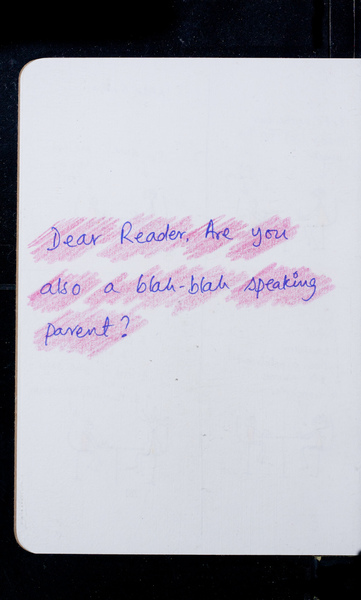 Dear Reader, Are you
also a blah-blah speaking
parent?